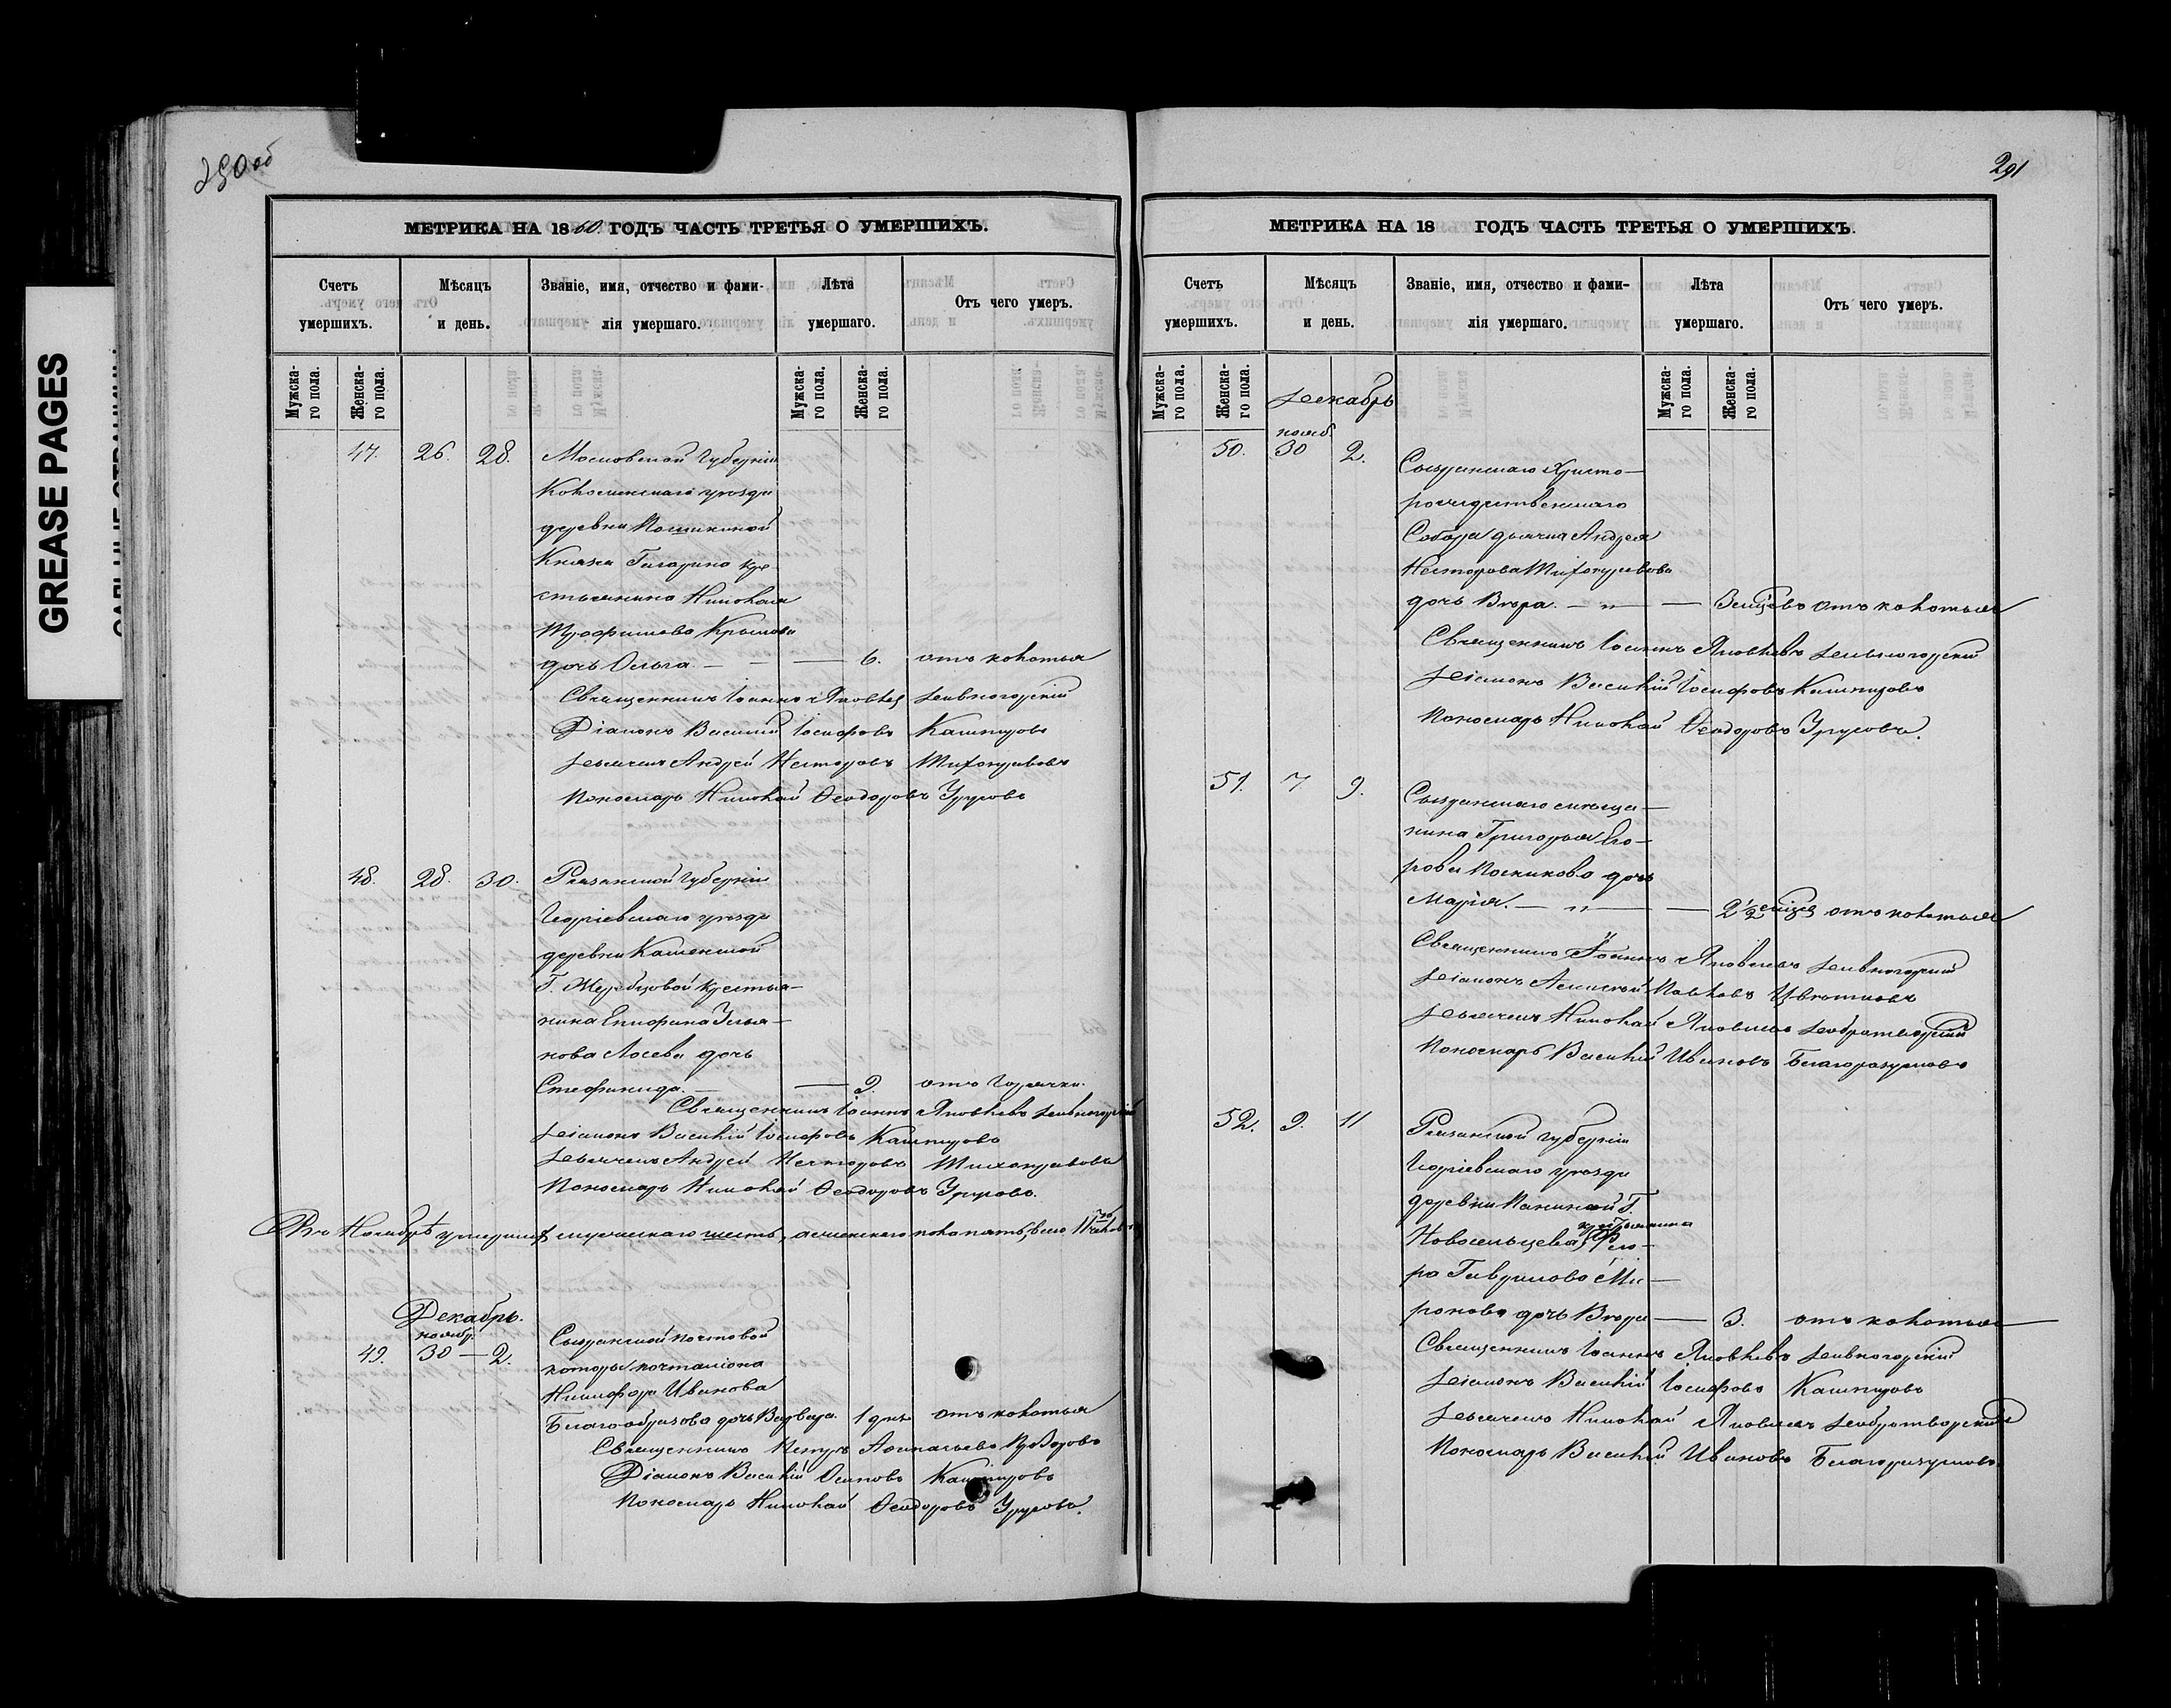 GREASE PAGES
290 об
МЕТРИКА НА 1860 ГОДЪ ЧАСТЬ ТРЕТЬЯ О УМЕРШИХЪ.
Счетъ умершихъ.
Мѣсяцъ и день.
Званіе, имя, отчество и фами-
лія умершаго.
Лѣта умершаго.
Отъ чего умеръ.
Мужска-
го пола.
Женска-
го пола.
Мужска-
го пола.
Женска-
го пола.
47. 26. 28. Московской Губерніи
Коломенскаго уѣзда
деревни
Князя Гагарина кре
стьянина Николая
Трофимова Крылова
дочь Ольга — — — 6. отъ колотья
Священникъ Іоаннъ Яковлев Дивногорскій
Діаконъ Василій Іосифовъ Кашпуровъ
Дьячекъ Андрей Несторовъ Тихонравовъ
Пономарь Николай Ѳеодоровъ Урусовъ
48. 28. 30. Рязанской Губерніи
Егорьевскаго уѣзда
деревни Каменской
Г. Жеребцовой крестья-
нина Епифана Улья-
нова Лосева дочь
Стефанида. — — 9. отъ горячки.
Священникъ Іоаннъ Яковлевъ Дивногорскій
Діаконъ Василій Іосифовъ Кашпуровъ
Дьячекъ Андрей Несторовъ Тихонравовъ
Пономарь Николай Ѳеодоровъ Урусовъ.
Въ Ноябрѣ умершихъ мужескаго шесть, а женскаго пола пять, всего 11ть человѣкъ
Декабрь.
ноябр.
49. 30 — 2. Сызранской почтовой
конторы почталіона
Никифора Иванова
Благообразова дочь Варвара. 1 дня отъ колотья
Священникъ Петръ
Діаконъ Василій Осиповъ Кашпуровъ
Пономарь Николай Ѳеодоровъ Урусовъ.
291
МЕТРИКА НА 18 ГОДЪ ЧАСТЬ ТРЕТЬЯ О УМЕРШИХЪ.
Счетъ умершихъ.
Мѣсяцъ и день.
Званіе, имя, отчество и фами-
лія умершаго.
Лѣта умершаго.
Отъ чего умеръ.
Мужска-
го пола.
Женска-
го пола.
Мужска-
го пола.
Женска-
го пола.
Декабрь
нояб.
50. 30 2. Сызранскаго Христо-
рождественскаго
Собора дьячка Андрея
Несторова Тихонравова
дочь Вѣра. — " — — 3 отъ колотья
Священникъ Іоаннъ Яковлевъ Дивногорскій
Діаконъ Василій Іосифовъ Кашпуровъ
Пономарь Николай Ѳеодоровъ Урусовъ.
51. 7 9. Сызранскаго мѣща-
нина Григорья Его-
рова дочь
Марія. — " — — 2 1/2 отъ колотья
Священникъ Іоаннъ Яковлевъ Дивногорскій
Діаконъ Алексѣй Павловъ Цвѣтковъ
Дьячекъ Николай Яковлевъ Добротворскій
Пономарь Василій Ивановъ Благоразумовъ
52. 9. 11 Рязанской губерніи
Егорьевскаго уѣзда
деревни Паниной Г.
крестьянина
Новосильцева, Фло-
ра Гаврилова Ми-
ронова дочь Вѣра — 3. отъ колотья
Священникъ Іоаннъ Яковлевъ Дивногорскій
Діаконъ Василій Іосифовъ Кашпуровъ
Дьячекъ Николай Яковлевъ Добротворскій
Пономарь Василій Ивановъ Благоразумовъ